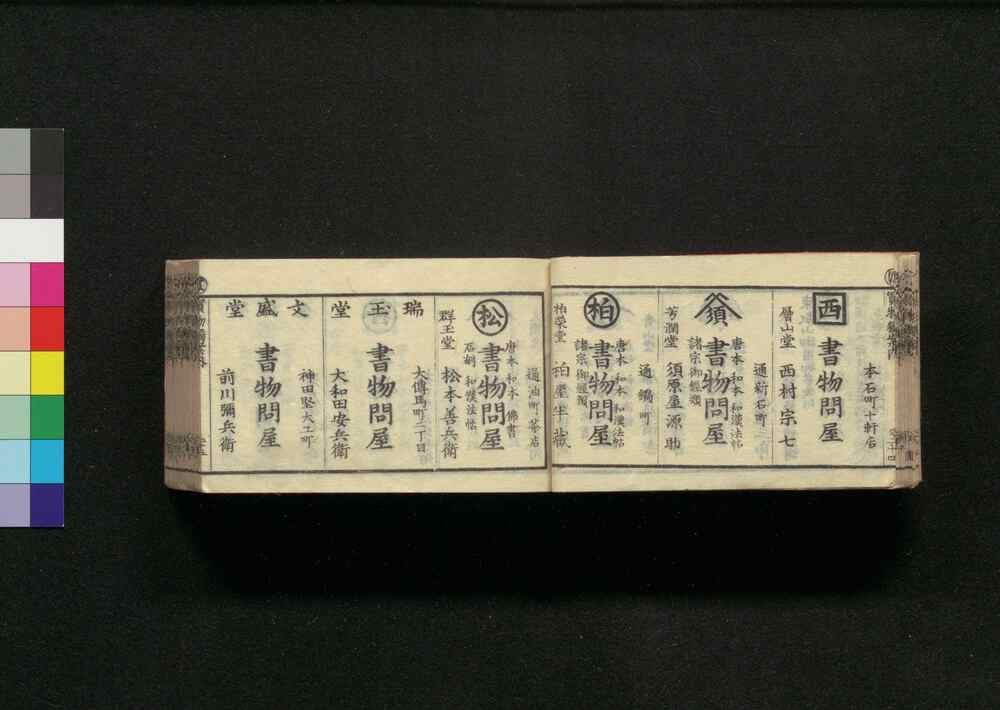 本石町十軒店
西
書物問屋
層山堂 西村宗七
通新石町
須
唐本 和本 和漢法帖
書物問屋
諸宗御経類
芳潤堂 須原屋源助
通 鍋町
柏
唐本 和本 和漢法帖
書物問屋
諸宗御経類
柏栄堂 柏屋半蔵
通油町
松
唐本 和本 佛書
書物問屋
石刻 和漢法帖
群玉堂 松本善兵衛
大傳馬町二丁目
瑞玉堂
書物問屋
大和田安兵衛
神田堅大工町
文盛堂
書物問屋
前川彌兵衛